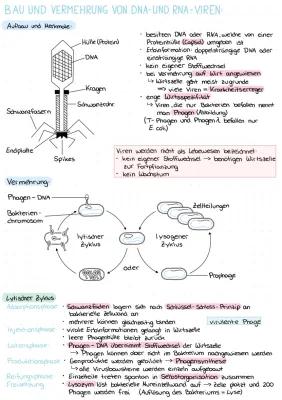 BAU UND VERMEHRUNG VON DNA-UND RNA-VIREN:
Aufbau und Merkmale:
Hülle (Protein)
DNA
Kragen
Schwanzrohr
Schwanzfasern
Endplatte
Spikes
• besitzen DNA oder RNA, welche von einer
Proteinhülle (Capsid) umgeben ist
• Erbinformation: doppelsträngige DNA oder
einzelsträngige RNA
• kein eigener Stoffwechsel
• bei Vermehrung auf Wirt angewiesen
↳ Wirtszelle geht meist zugrunde
⇒ viele Viren = Krankheitserreger
• enge Wirtsspezifität
↳ Viren, die nur Bakterien befallen nennt
man Phagen (Abbildung)
(T- Phagen und Phagen λ befallen nur
E.coli)
Viren werden nicht als Lebewesen bezeichnet:
- kein eigener Stoffwechsel → benötigen Wirtszelle
zur Fortpflanzung
- kein Wachstum
Vermehrung:
Phagen - DNA
Bakterien-
chromosom
lytischer
Zyklus
oder
lysogener
Zyklus
Zellteilungen
Prophage
Lytischer Zyklus
virulente Phage
Adsorptionsphase • Schwanzfäden lagern sich nach Schlüssel-Schloss-Prinzip an
bakterielle Zellwand an
• mehrere können gleichzeitig binden
Injektionsphase • virale Erbinformationen gelangt in Wirtszelle
• leere Phagenhülle bleibt zurück
Latenzphase • Phagen-DNA übernimmt Stoffwechsel der Wirtszelle
→ Phagen können aber nicht in Bakterium nachgewiesen werden
Produktionsphase • Genprodukte werden gebildet → Phagensynthese
→ alle Virusbausteine werden einzeln aufgebaut
Reifungsphase • Einzelteile treten spontan in Selbstorganisation zusammen
Freisetzung • Lysozym löst bakterielle Mureinzellwand auf → Zelle platzt und 200
Phagen werden frei (Auflösung des Bakteriums = Lyse)